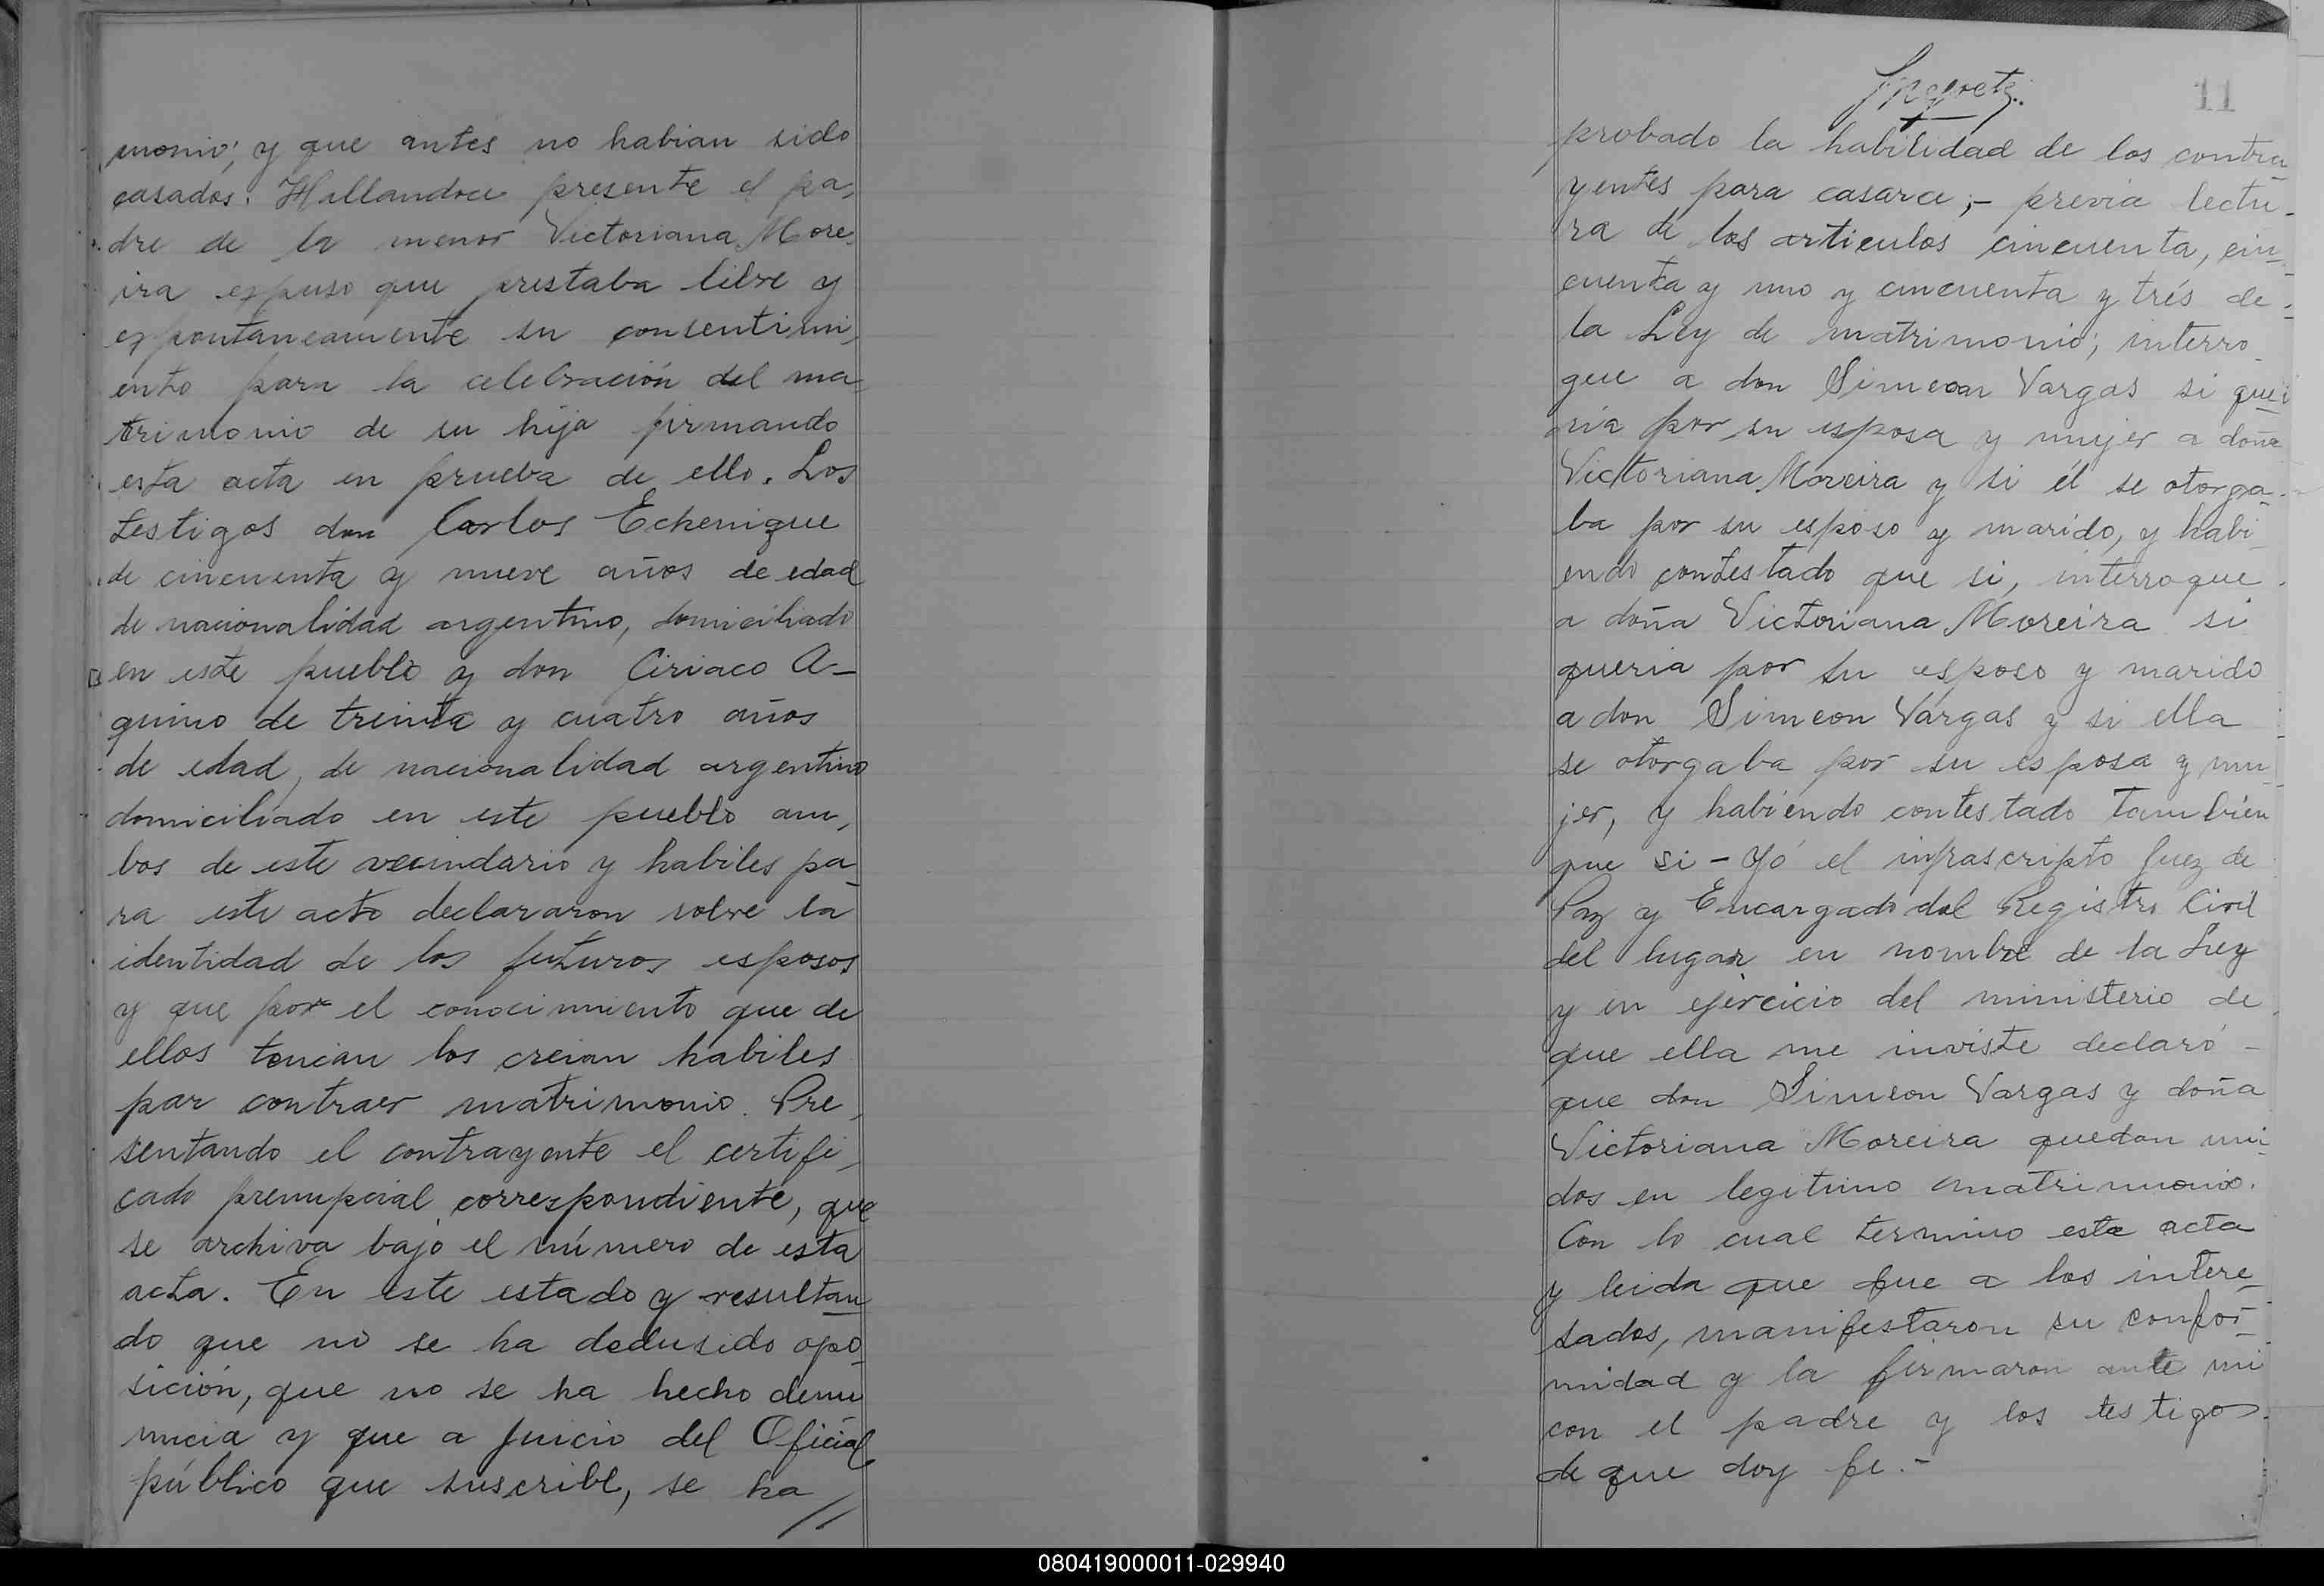 monio; y que antes no habian sido
casados. Hallandoce presente el pa,
dre de la menor Victoriana More,
ira expuso que prestaba libre y
expontaneamente su consentimi,
ento para la celebración del ma
trimonio de su hija firmando
esta acta en prueba de ello. Los
testigos don Carlos Echenique
de cincuenta y nueve años de edad
de nacionalidad argentino, domiciliado
en este pueblo y don Ciriaco A-
quino de treinta y cuatro años
de edad, de nacionalidad argentino
domiciliado en este pueblo am,
bos de este vecindario y habiles pa
ra este acto declararon sobre la
identidad de los futuros esposos
y que por el conocimiento que de
ellos tenian los creian habiles
par contraer matrimonio. Pre,
sentando el contrayente el certifi,
cado prenupcial correspondiente, que
se archiva bajo el número de esta
acta. En este estado y resultan
do que no se ha dedusido opo
sición, que no se ha hecho denu
nucia y que a juicio del Oficial
público que suscribe, se ha //
11
probado la habilidad de los contra
yentes para casarce;- previa lectu-
ra de los articulos cincuenta, cin
cuenta y uno y cincuenta y trés de
la Ley de matrimonio; interro
gue a don Simeon Vargas si que
ria por su esposa y mujer a doña
Victoriana Moreira y si él se otorga
ba por su esposo y marido, y habi
endo contestado que si, interrogue
a doña Victoriana Moreira si
queria por su esposo y marido
a don Simeon Vargas y si ella
se otorgaba por su esposa y mu
jer, y habiendo contestado tambien
que si - Yó el infrascripto Juez de
Paz y Encargado del Registro Civil
del lugar en nombre de la Ley
y en ejercicio del ministerio de
que ella me inviste declaró -
que don Simeon Vargas y doña
Victoriana Moreira quedan uni
dos en legitimo matrimonio.
Con lo cual termino esta acta
y leida que fue a los intere
sados, manifestaron su confor
midad y la firmaron ante mi
con el padre y los testigos
de que doy fe.-
080419000011-029940